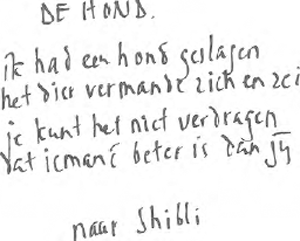 DE HOND.
ik had een hond geslagen
het dier vermande zich en zei
je kunt het niet verdragen
dat iemand beter is dan jij
naar Shibli